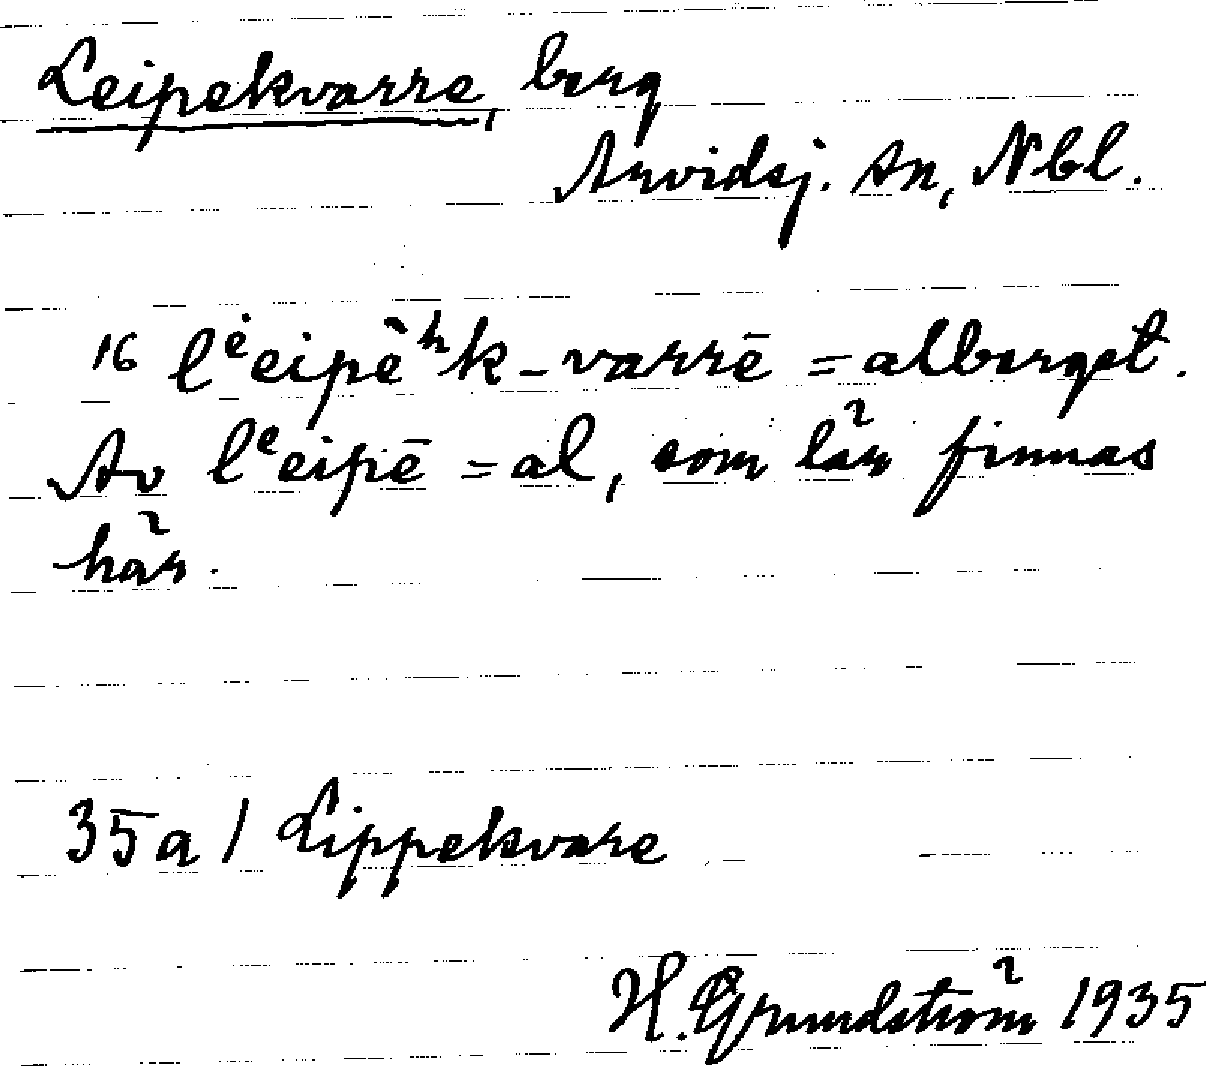 Leipekvarre, berg
Arvidsj. sn, Nbl.
16 lėeipēʰk-varrē = alberget.
Av lᵉeipē = al, som lär finnas
här.
35a / Lippekvare
H. Grundström 1935